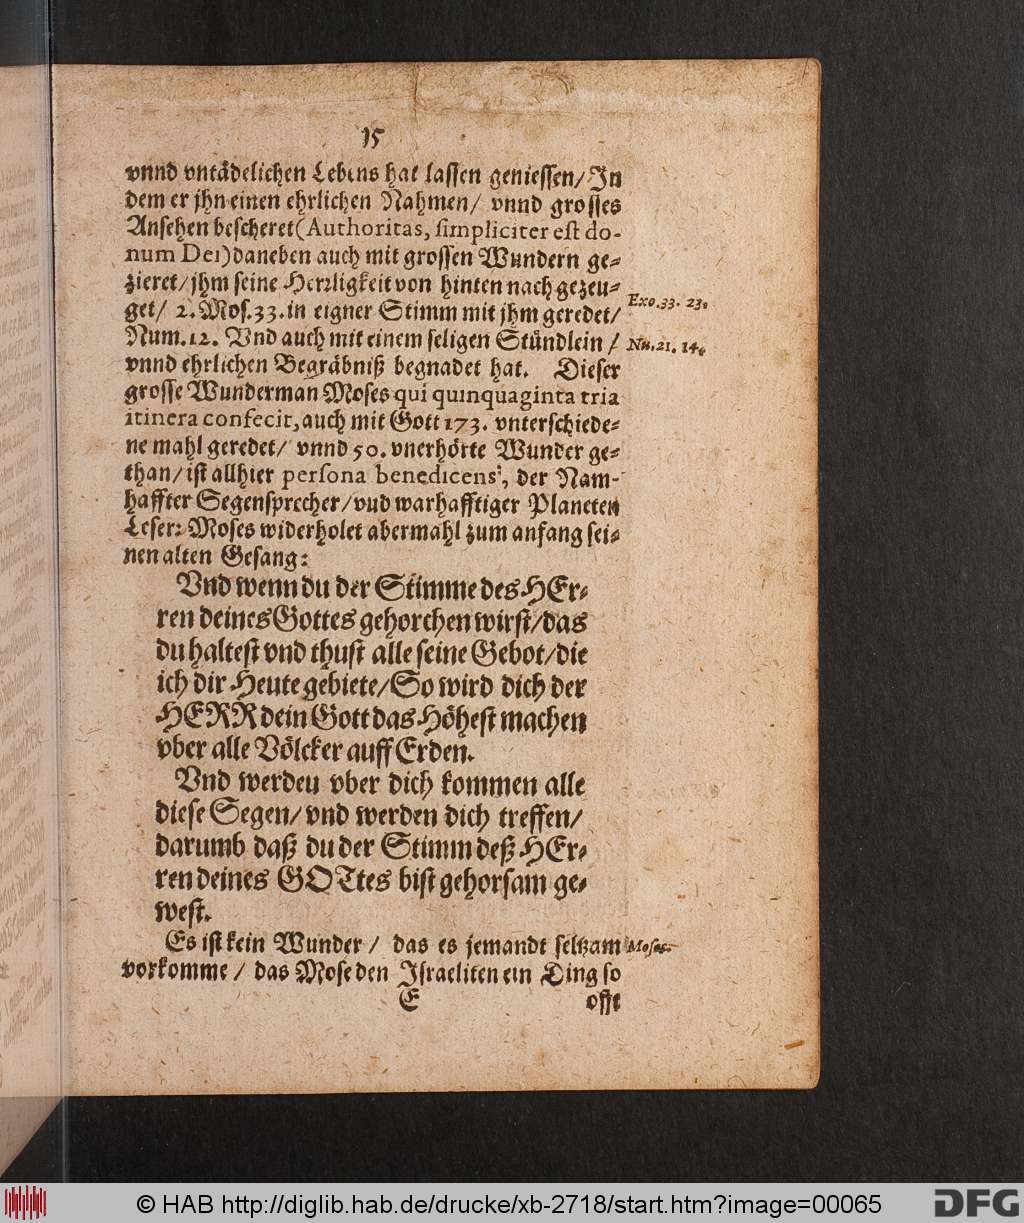 15
vnnd vntädelichen Lebens hat lassen geniessen/ In
dem er jhn einen ehrlichen Nahmen/ vnnd grosses
Ansehen bescheret (Authoritas, simpliciter est do-
num Dei) daneben auch mit grossen Wundern ge-
zieret/ jhm seine Herrligkeit von hinten nach gezeu-
get/ 2. Mos. 33. in eigner Stimm mit jhm geredet/
Exo. 33. 23.
Num. 12. Vnd auch mit einem seligen Stündlein /
Nu. 21. 14.
vnnd ehrlichen Begräbniß begnadet hat. Dieser
grosse Wunderman Moses qui quinquaginta tria
itinera confecit, auch mit Gott 173. vnterschiede-
ne mahl geredet/ vnnd 50. vnerhörte Wunder ge-
than/ ist allhier persona benedicens, der Nam-
haffter Segensprecher/ vud warhafftiger Planeten
Leser: Moses widerholet abermahl zum anfang sei-
nen alten Gesang:
Vnd wenn du der Stimme des HEr-
ren deines Gottes gehorchen wirst/ das
du haltest vnd thust alle seine Gebot/ die
ich dir Heute gebiete/ So wird dich der
HERR dein Gott das Höhest machen
vber alle Völcker auff Erden.
Vnd werdeu vber dich kommen alle
diese Segen/ vnd werden dich treffen/
darumb daß du der Stimm deß HEr-
ren deines GOTtes bist gehorsam ge-
west.
Es ist kein Wunder / das es jemandt seltzam
Moses.
vorkomme / das Mose den Israeliten ein Ding so
E offt
© HAB http://diglib.hab.de/drucke/xb-2718/start.htm?image=00065
DFG